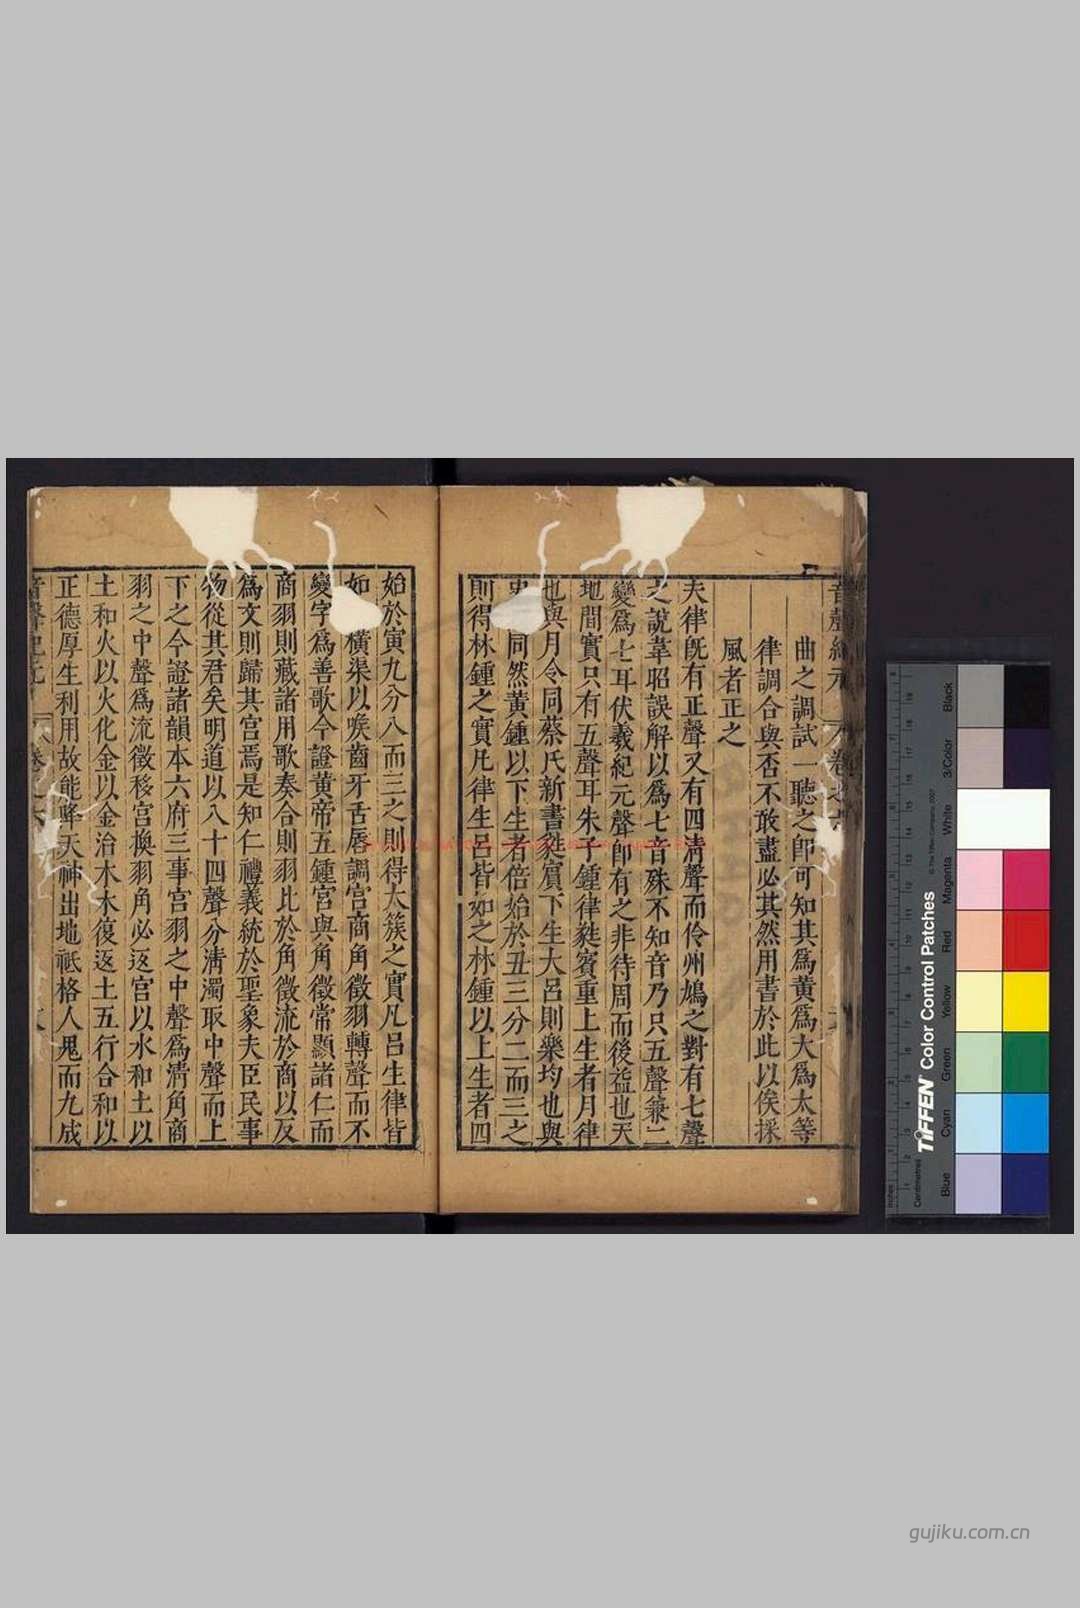 音聲紀元
卷之六
曲之調試一聽之卽可知其爲黄爲大爲太等
律調合與否不敢盡必其然用書於此以俟採
風者正之
夫律旣有正聲又有四淸聲而伶州鳩之對有七聲
之說韋昭誤解以爲七音殊不知音乃只五聲兼二
變爲七耳伏羲紀元聲卽有之非待周而後益也天
地間實只有五聲耳朱子鍾律蕤賓重上生者月律
也與月令同蔡氏新書蕤賓下生大呂則樂均也與
同然黄鍾以下生者倍始於丑三分二而三之
則得林鍾之實凡律生呂皆如之林鍾以上生者四
始於寅九分八而三之則得大簇之實凡呂生律皆
如 橫渠以喉齒牙舌唇調宮商角徵羽轉聲而不
變字爲善歌今證黄帝五鍾宮與角徵常顯諸仁而
商羽則藏諸用歌奏合則羽比於角徵流於商以反
爲文則歸其宮焉是知仁禮義統於聖象夫臣民事
物從其君矣明道以八十四聲分淸濁取中聲而上
下之今證諸韻本六府三事宮羽之中聲爲淸角商
羽之中聲爲流徵移宮換羽角必返宮以水和土以
土和火以火化金以金治木木復返土五行合和以
正德厚生利用故能降天神出地祗格人鬼而九成
音聲紀元
卷之六
TIFFEN Color Control Patches
© The Tiffen Company, 2007
Centimetres
Inches
Blue
Cyan
Green
Yellow
Red
Magenta
White
3/Color
Black
gujiku.com.cn